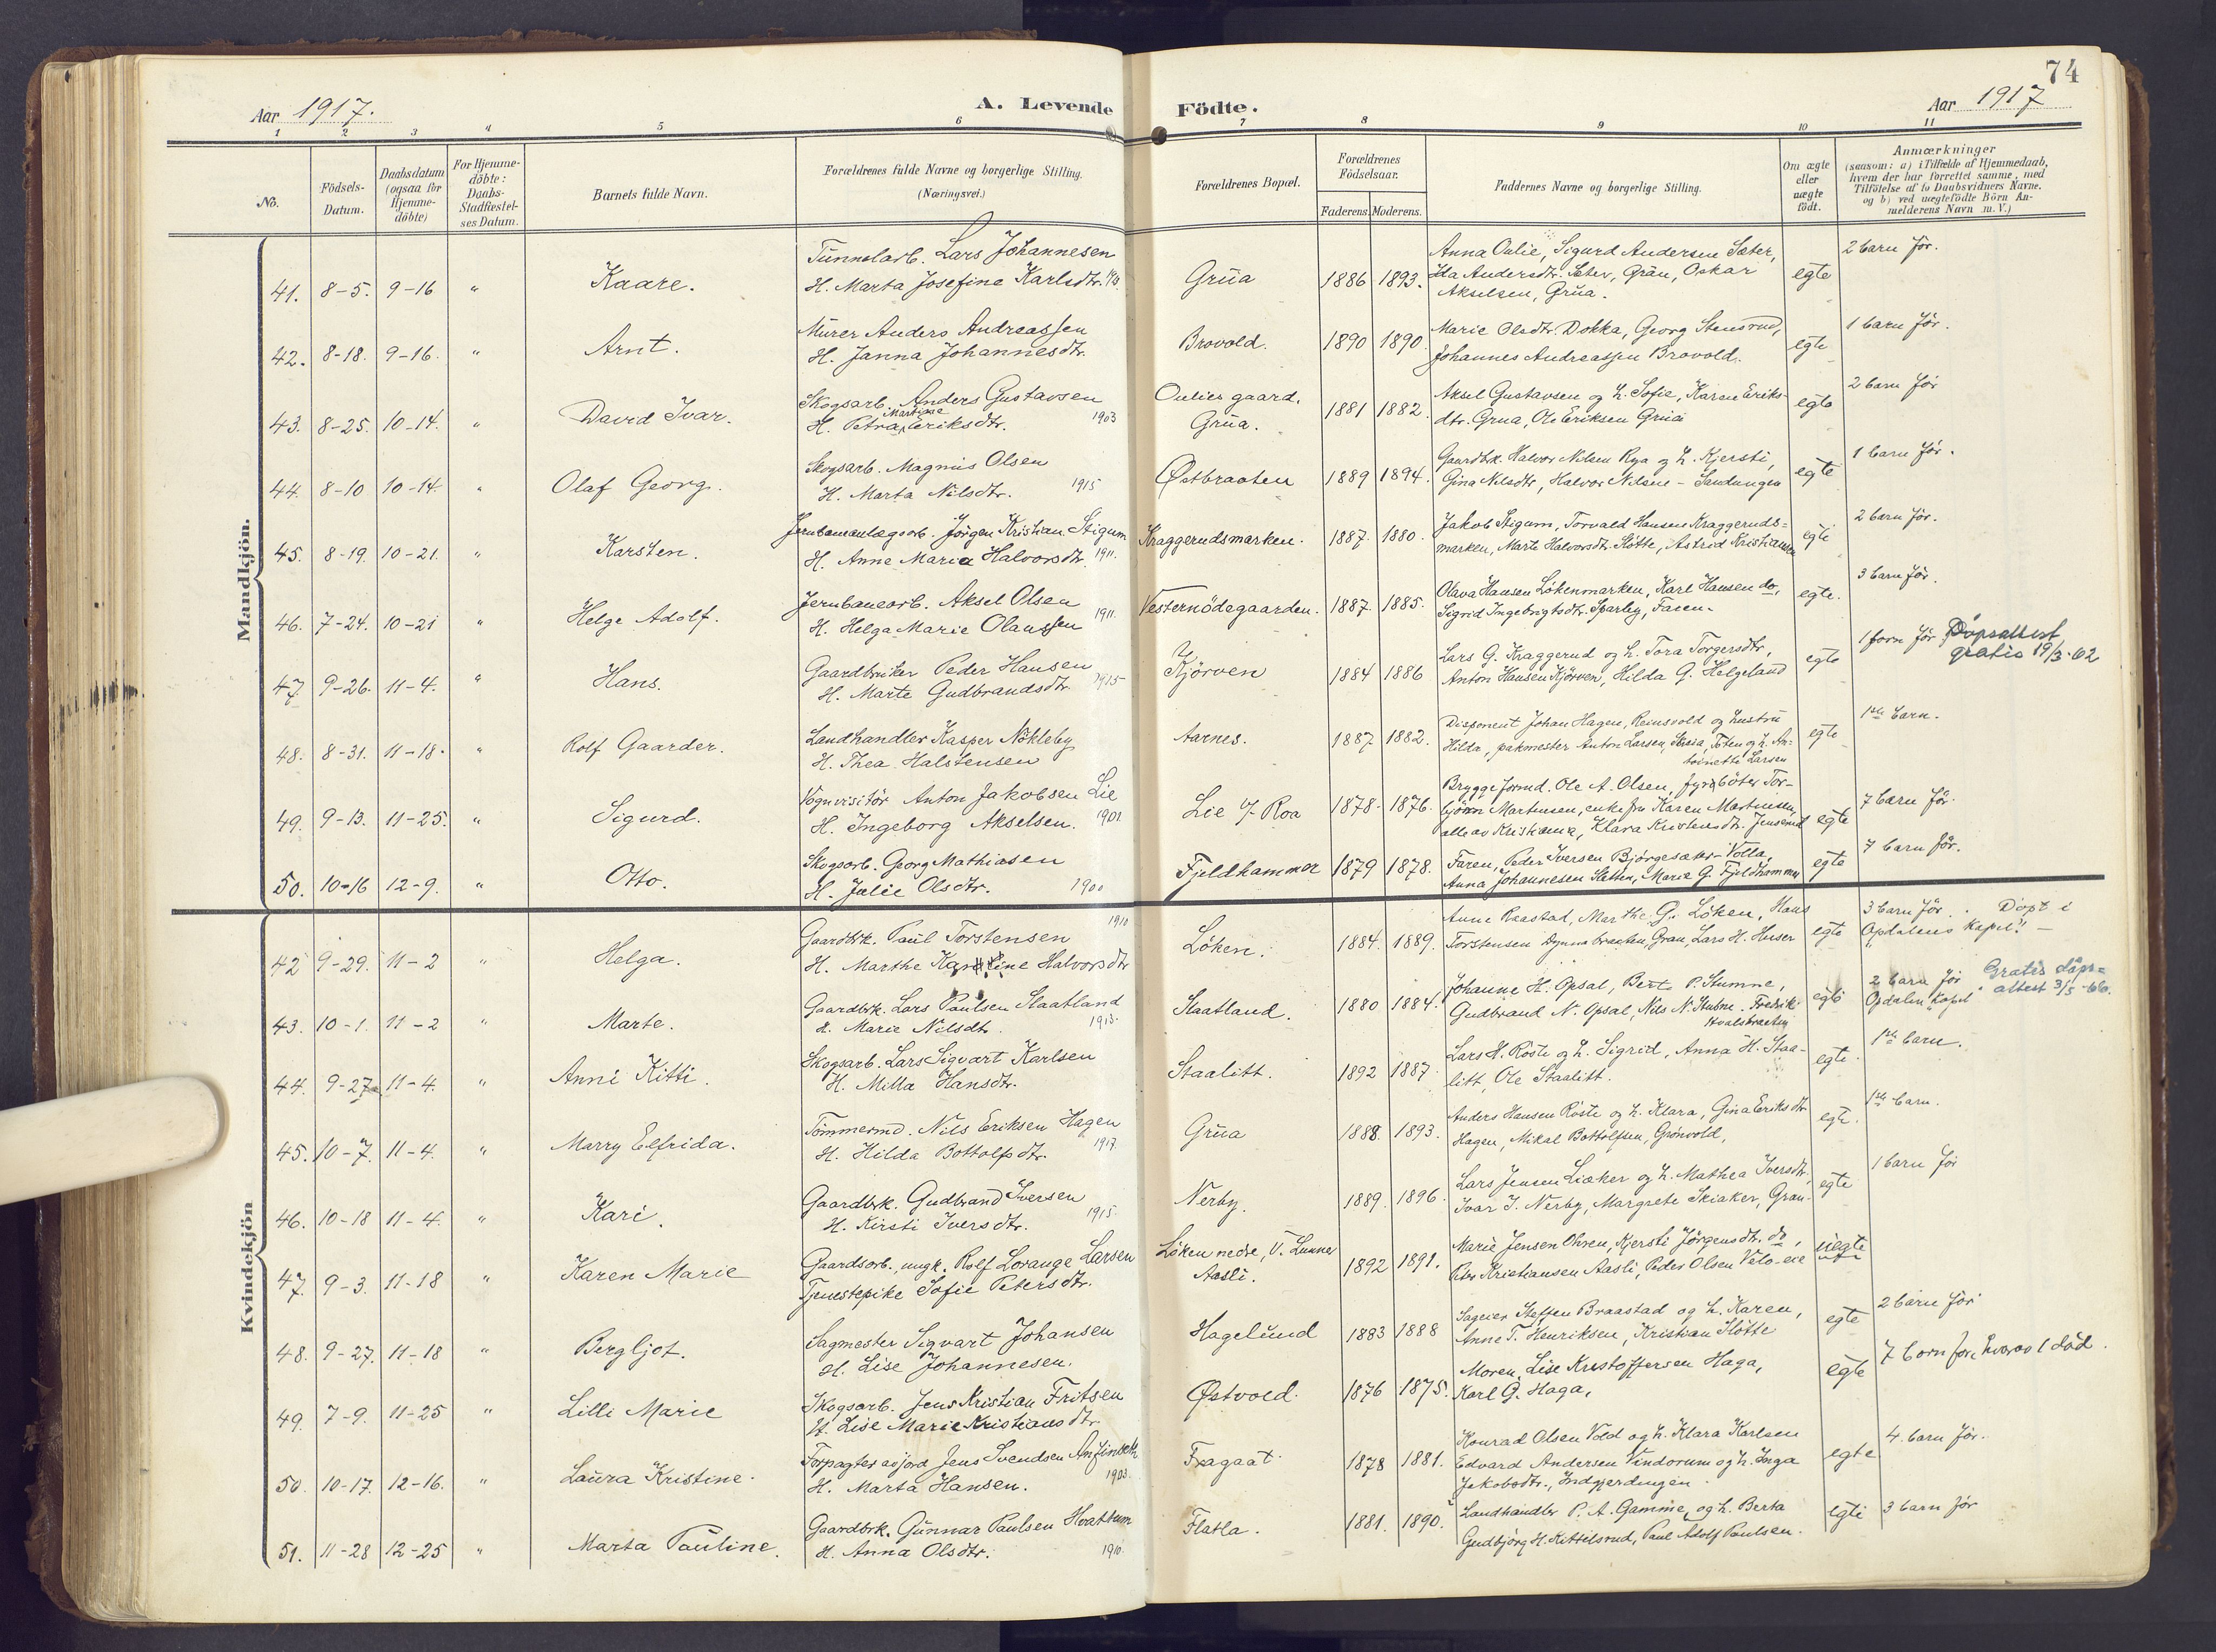 74
Aar 1917.
A. Levende Födte.
Aar 1917
1 2 3 4 5 6 7 8 9 10 11
No.
Födsels-Datum.
Daabsdatum (ogsaa for Hjemme-döbte)
For Hjemme-döbte: Daabs-Stadfæstel-ses Datum.
Barnets fulde Navn.
Forældrenes fulde Navne og borgerlige Stilling. (Næringsvei.)
Forældrenes Bopæl.
Forældrenes Födselsaar.
Faderens. Moderens.
Faddernes Navne og borgerlige Stilling.
Om ægte eller uægte födt.
Anmærkninger
(saasom: a) i Tilfælde af Hjemmedaab,
hvem der har forrettet samme, med
Tilföielse af to Daabsvidners Navne.
og b) ved uægtefödte Börn An-
melderens Navn m. V.)
Mandkjön.
Tunnelarb. Lars Johannesen
41. 8-5. 9-16 " Kaare. H. Marta Josefine Karlsdtr. Grua 1886 1893. egte 2 barn før.
Anna Oulie, Sigurd Andersen Sæter,
Ida Andersdtr. Sæter, Gran, Oskar
Akselsen, Grua.
Murer Anders Andreassen
42. 8-18. 9-16. " Arnt. H. Janna Johannesdtr. Brovold. 1890 1890. egte 1 barn før.
Marie Olsdtr. Dokka, Georg Stensrud,
Johannes Andreassen Brovold.
Skogsarb. Anders Gustavsen
43. 8-25. 10-14. " David Ivar. H. Petra Martine Eriksdtr. 1903 Oulies gaard, Grua. 1881 1882. egte 2 barn før
Aksel Gustavsen og h. Sofie, Karen Eriks-
dtr. Grua, Ole Eriksen Grua
Skogsarb. Magnus Olsen
44. 8-10 10-14. " Olaf Georg. H. Marta Nilsdtr. 1915 Østbraaten 1889 1894. egte 1 barn før.
Gaardbk. Halvor Nilsen Rya og h. Kjersti,
Gina Nilsdtr, Halvor Nilsen - Sandungen
Jernbaneanlægsarb. Jørgen Kristian Stigum
45. 8-19. 10-21. " Karsten. H. Anne Maria Halvorsdtr. 1911. Kraggerudsmarken. 1887. 1880. egte 2 barn før.
Jakob Stigum, Torvald Hansen Kraggeruds=
marken, Marte Halvorsdtr. Slötte, Astrid Kristiansen
Jernbanearb. Aksel Olsen
46. 7-24. 10-21 " Helge Adolf. H. Helga Marie Olaussen 1911. Vesternödegaarden. 1887. 1885. egte. 3 barn før.
Olava Hansen Lökenmarken, Karl Hansen do,
Sigrid Ingebrigtsdtr. Sparby, Faren.
Gaardbruker Peder Hansen
47. 9-26. 11-4. " Hans. H. Marte Gudbrandsdtr. 1915 Kjörven 1884 1886 egte 1 forn før Døpsattest gratis 19/3-62
Lars G. Kraggerud og h. Tora Torgersdtr,
Anton Hansen Kjörven, Hilda G. Helgeland
Landhandler Kasper Nökleby
48. 8-31. 11-18. " Rolf Gaarder. H. Thea Halstensen Aarnes. 1887 1882. egte 1ste barn.
Disponent Johan Hagen, Reinsvold og hustru
Hilda, pakmester Anton Larsen, Toten og h. An-
toinette Larsen
Vognvisitör Anton Jakobsen Lie
49. 9-13. 11-25. " Sigurd. H. Ingeborg Akselsen. 1901 Lie o/ Roa 1878. 1876. egte 7 barn før.
Bryggeformd. Ole A. Olsen, fyrböter Tor-
björn Martinsen, enkefru Karen Martinsen,
alle av Kristiania, Klara Kristensdtr. Jensrud
Skogsarb. Georg Mathiasen
50. 10-16 12-9. " Otto. H. Julie Olsdtr. 1900 Fjeldhammer 1879 1878. egte 7 barn før.
Faren, Peder Iversen Björgesæter-Volla,
Anna Johannesen Sletten, Marie G. Fjeldhammer
Kvindekjön
Gaardbrk. Paul Torstensen 1910
42 9-29. 11-2 " Helga. H. Marthe Karoline Halvorsdtr Löken. 1884. 1889. egte 3 barn før. Döpt i Opdalens Kapel!
Anne Raastad, Marthe G. Löken, Hans
Torstensen Dynnabraaten, Gran, Lars H. Huser
Gaardbrk. Lars Paulsen Staatland
43. 10-1. 11-2 " Marte. H. Marie Nilsdtr. 1913. Staatland. 1880 1884. egte 2 barn før Opdalen Kapel Gratis döps-attest 3/5-66.
Johanne H. Opsal, Berte P. Stumne,
Gudbrand N. Opsal, Nils N. Stubne. Fredrik
Hvalsbraaten
Skogsarb. Lars Sigvart Karlsen
44. 9-27 11-4. " Anni Kitti. H. Milla Hansdtr. Staalitt. 1892 1887 egte. 1ste barn.
Lars H. Röste og h. Sigrid, Anna H. Staa-
litt, Ole Staalitt.
Tömmermd. Nils Eriksen Hagen
45. 10-7. 11-4. " Marry Elfrida. H. Hilda Bottolfsdtr. 1917. Grua 1888. 1893. egte. 1ste barn.
Anders Hansen Röste og h. Klara, Gina Eriksdtr
Hagen, Mikal Bottolfsen, Grönvold,
Gaardbrk. Gudbrand Iversen
46. 10-18 11-4. " Kari. H. Kirsti Iversdtr. 1915. Nerby. 1889. 1896. egte 1 barn før
Lars Jensen Liaker og h. Mathea Iversdtr,
Ivar I. Nerby, Margrete Skiaker, Gran.
Gaardsarb., ungk. Rolf Lorange Larsen
47. 9-3. 11-18 " Karen Marie Tjenestepike Sofie Petersdtr. Löken nedre, V. Lunner Aasli. 1892 1891. uegte
Marie Jensen Ohren, Kjersti Jörgensdtr. do,
Peter Kristiansen Aasli, Peder Olsen Velo-eie
Sagmester Sigvart Johansen
48. 9-27. 11-18 " Bergljot. H. Lise Johannesen. Hagelund 1883 1888 egte 2 barn før
Sageier Steffen Braastad og h. Karen,
Anne T. Henriksen, Kristian Slötte
Skogsarb. Jens Kristian Fritsen
49. 7-9. 11-25 " Lilli Marie H. Lise Marie Kristiansdtr. Østvold. 1876 1875. egte 7 born före hvorav 1 död.
Moren, Lise Kristoffersen Haga,
Karl G. Haga,
Forpagter av jord Jens Svendsen Anfinseth
50. 10-17. 12-16. " Laura Kristine. H. Marta Hansen. 1903. Fragaat 1878 1881. egte 4. barn før.
Konrad Olsen Vold og h. Klara Karlsen
Edvard Andersen Vindorum og h. Inga
Jakobsdtr., Indgjerdingen.
Gaardbrk. Gunnar Paulsen Hvattum
51. 11-28 12-25 " Marta Pauline. H. Anna Olsdtr. 1910. Flatla. 1881. 1890. egte 3 barn før
Landhandler P. A. Gamme, og h. Berta
Gudbjörg H. Kittilsrud, Paul Adolf Paulsen.